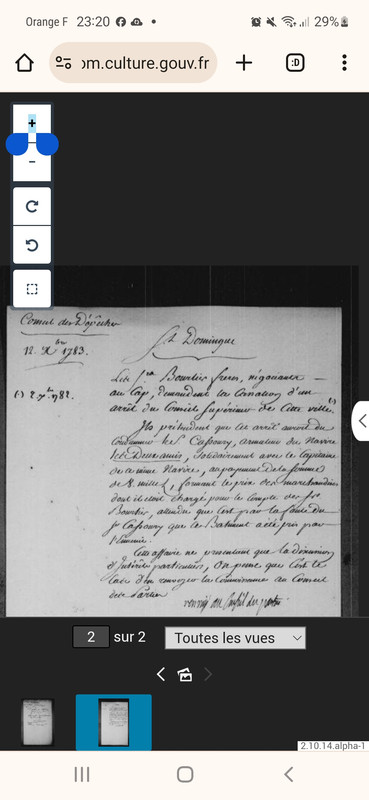 Orange F 23:20 29%
om.culture.gouv.fr + :D
+
-
Conseil des Dépêches
12. Xbre 1783.
St Domingue
Les Srs Bourtier freres, négociants
au Cap, demandent la Cassation d'un
(1) 2. 7bre 1782.
arrêt du Conseil Supérieur de Cette ville. (1)
Ils prétendent que cet arrêt auroit du
Condamner le Sr Cassouy, armateur du Navire
les Deux amis, solidairement avec le Capitaine
de ce même Navire, au payement de la somme
de 8. mille#, formant le prix des marchandises
dont il etoit chargé pour le Compte des Srs
Bourtier, attendu que c'est par la faute du
Sr Cassouy que le Batiment a été pris par
l'Ennemi.
Cette affaire ne présentant que la discussion
d'Intérêts particuliers, On pense que C'est le
Cas d'en renvoyer la Connoissance au Conseil
des Parties
renvoi au Conseil des parties
2 sur 2 Toutes les vues
2.10.14.alpha-1